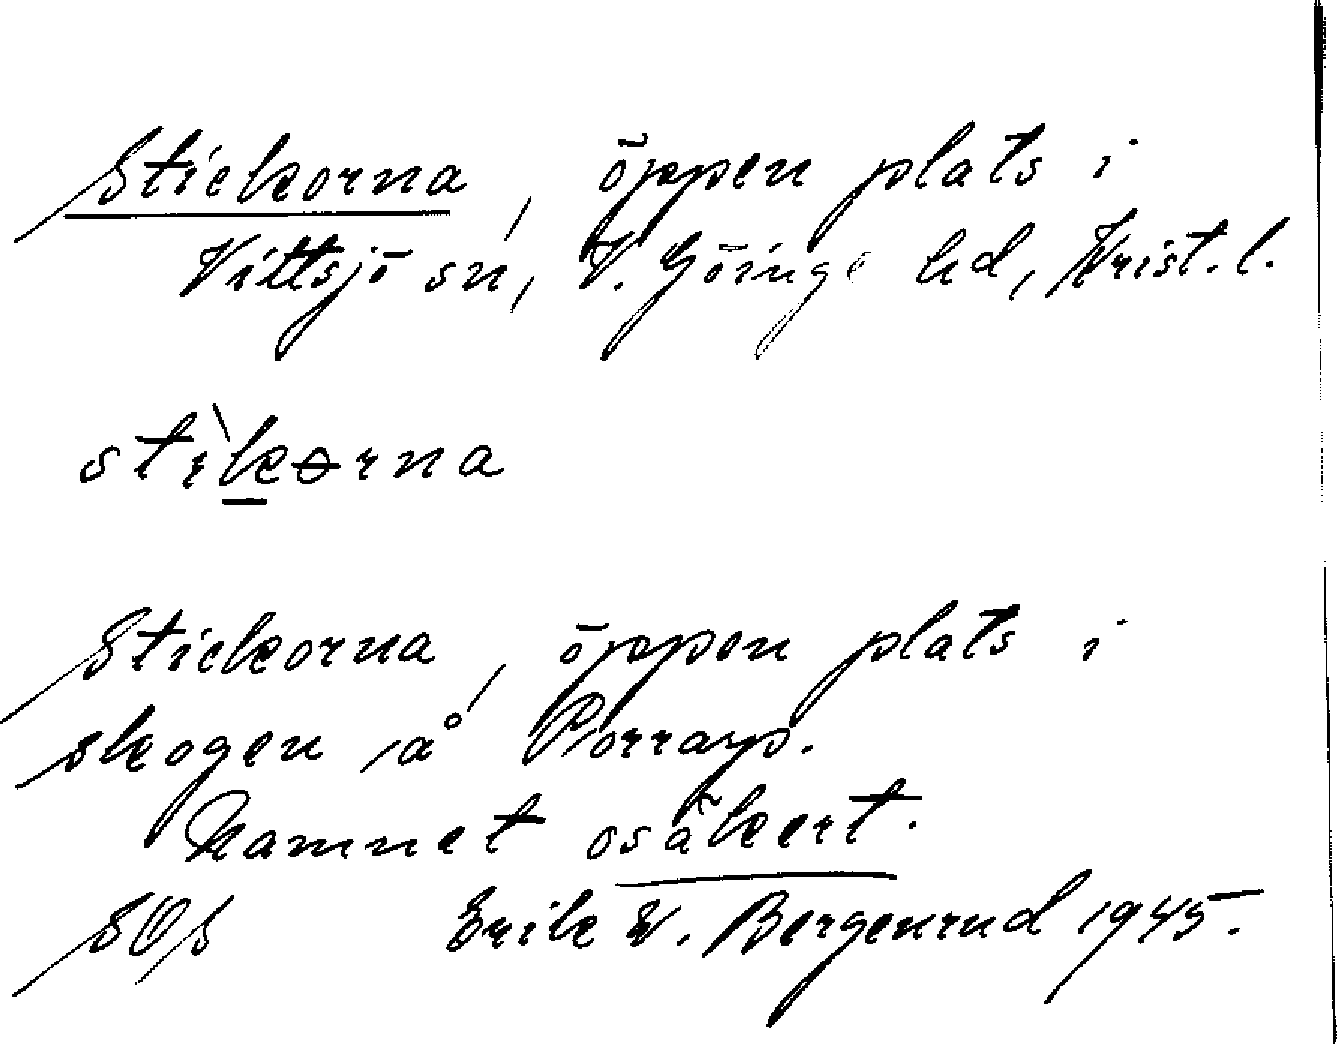 Stickorna, öppen plats i
Vittsjö sn, V. Göinge hd, Krist. l.
stìkorna
Stickorna, öppen plats i
skogen å Porrarp.
Namnet osäkert.
Erik W. Bergenrud 1945.